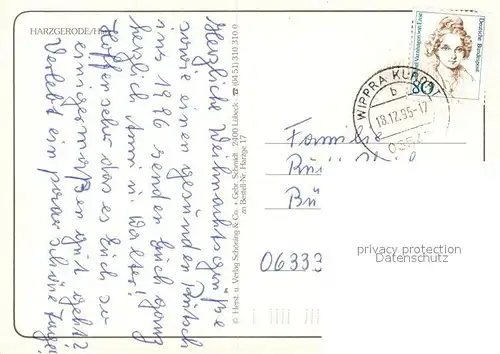 HARZGERODE/H
Herzliche Weihnachtsgrüße
sowie einen gesunden Rutsch
ins 1996 senden Euch ganz
herzlich Anni u. Walter!
Hoffen sehr das es Euch so
einigermaßen gut geht?
Verlebt ein paar schöne Tage!
© Horst u. Verlag Schöning & Co. + Gebr. Schmidt · 2400 Lübeck · ☎ (04 51) 310 310 0
Bestell-Nr. Harzge 17
Deutsche Bundespost
Rahel Varnhagen von Ense
80
WIPPRA KURORT
b
18.12.95-17
Familie
Bü
06333
privacy protection
Datenschutz